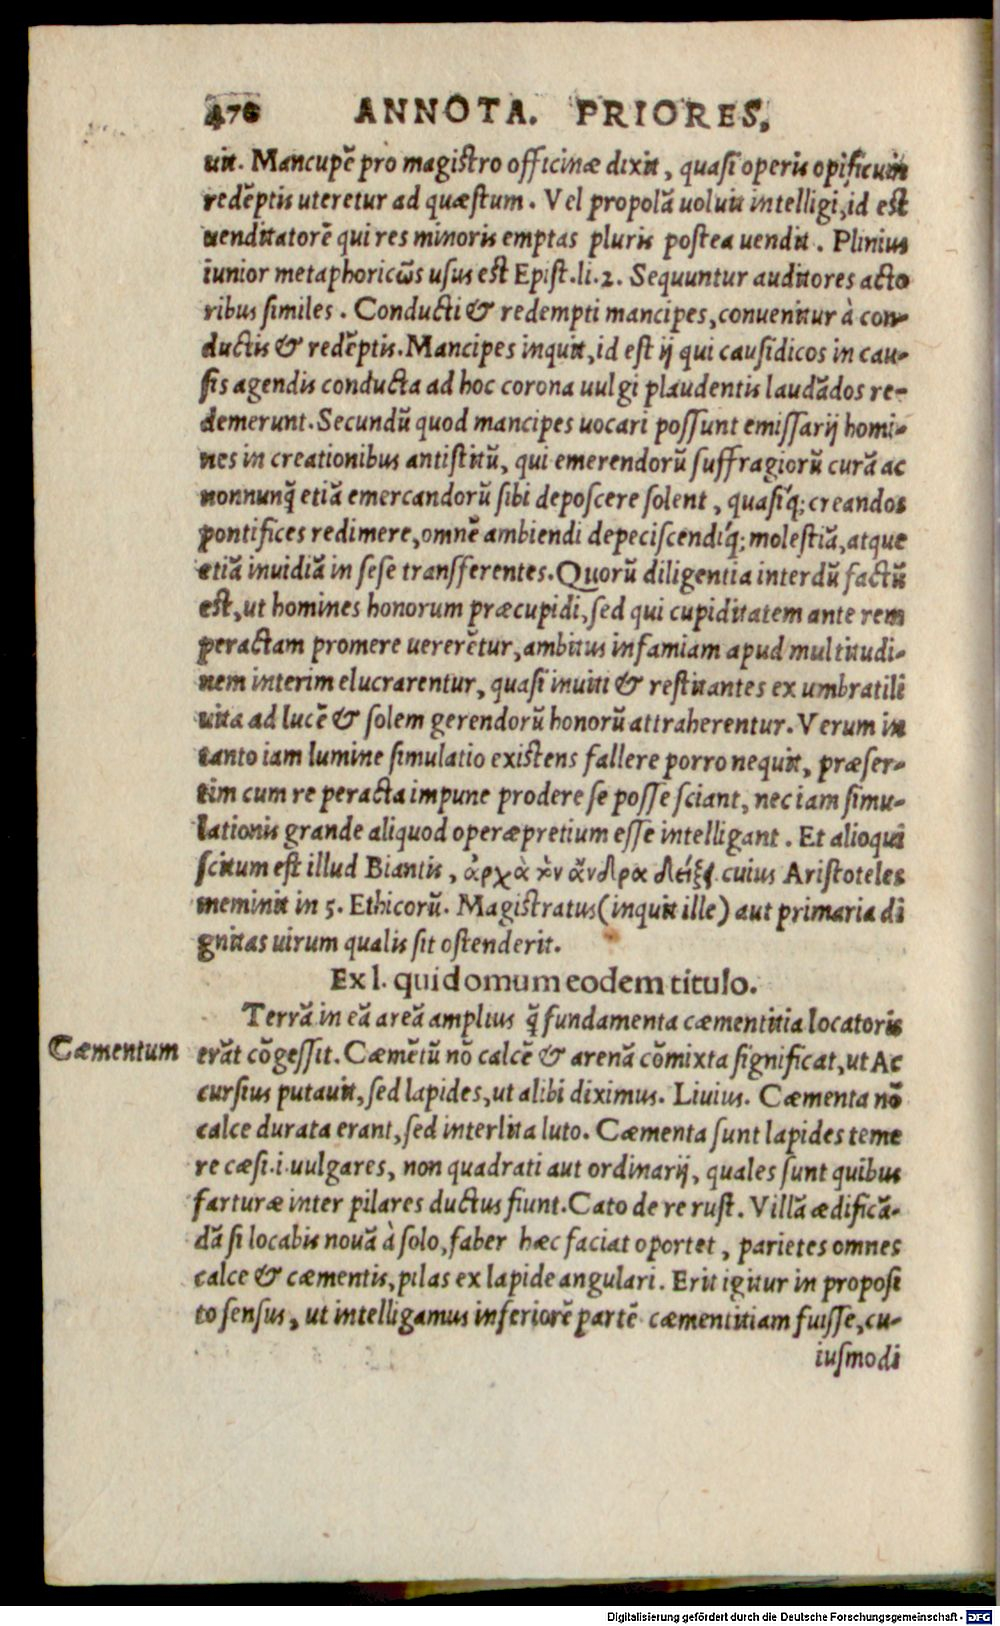 478 ANNOTA. PRIORES,
uit. Mancupē pro magistro officinæ dixit, quasi operis opificum
redēptis uteretur ad quæstum. Vel propolā uoluit intelligi, id est
uenditatorē qui res minoris emptas pluris postea uendit. Plinius
iunior metaphoricῶs usus est Epist.li.2. Sequuntur auditores acto
ribus similes. Conducti & redempti mancipes, conuenitur à con-
ductis & redēptis. Mancipes inquit, id est ij qui causidicos in cau-
sis agendis conducta ad hoc corona uulgi plaudentis laudādos re-
demerunt. Secundū quod mancipes uocari possunt emissarij homi-
nes in creationibus antistitū, qui emerendorū suffragiorū curā ac
nonnunq̃ etiā emercandorū sibi deposcere solent, quasíq; creandos
pontifices redimere, omnē ambiendi depeciscendíq; molestiā, atque
etiā inuidiā in sese transfferentes. Quorū diligentia interdū factū
est, ut homines honorum præcupidi, sed qui cupiditatem ante rem
peractam promere uererētur, ambitus infamiam apud multitudi-
nem interim elucrarentur, quasi inuiti & restitantes ex umbratili
uita ad lucē & solem gerendorū honorū attraherentur. Verum in
tanto iam lumine simulatio existens fallere porro nequit, præser-
tim cum re peracta impune prodere se posse sciant, nec iam simu-
lationis grande aliquod operæpretium esse intelligant. Et alioqui
scitum est illud Biantis, ἀρχὰ τὸν ἄνδρα δείξει cuius Aristoteles
meminit in 5. Ethicorū. Magistratus (inquit ille) aut primaria di
gnitas uirum qualis sit ostenderit.
Ex l. qui domum eodem titulo.
Terrā in eā areā amplius q̃ fundamenta cæmentitia locatoris
Cæmentum
erāt cōgessit. Cæmētū nō calcē & arenā cōmixta significat, ut Ac
cursius putauit, sed lapides, ut alibi diximus. Liuius. Cæmenta nō
calce durata erant, sed interlita luto. Cæmenta sunt lapides teme
re cæsi.i.uulgares, non quadrati aut ordinarij, quales sunt quibus
farturæ inter pilares ductus fiunt. Cato de re rust. Villā ædificā-
dā si locabis nouā à solo, faber hæc faciat oportet, parietes omnes
calce & cæmentis, pilas ex lapide angulari. Erit igitur in proposi
to sensus, ut intelligamus inferiorē partē cæmentitiam fuisse, cu-
iusmodi
Digitalisierung gefördert durch die Deutsche Forschungsgemeinschaft - DFG